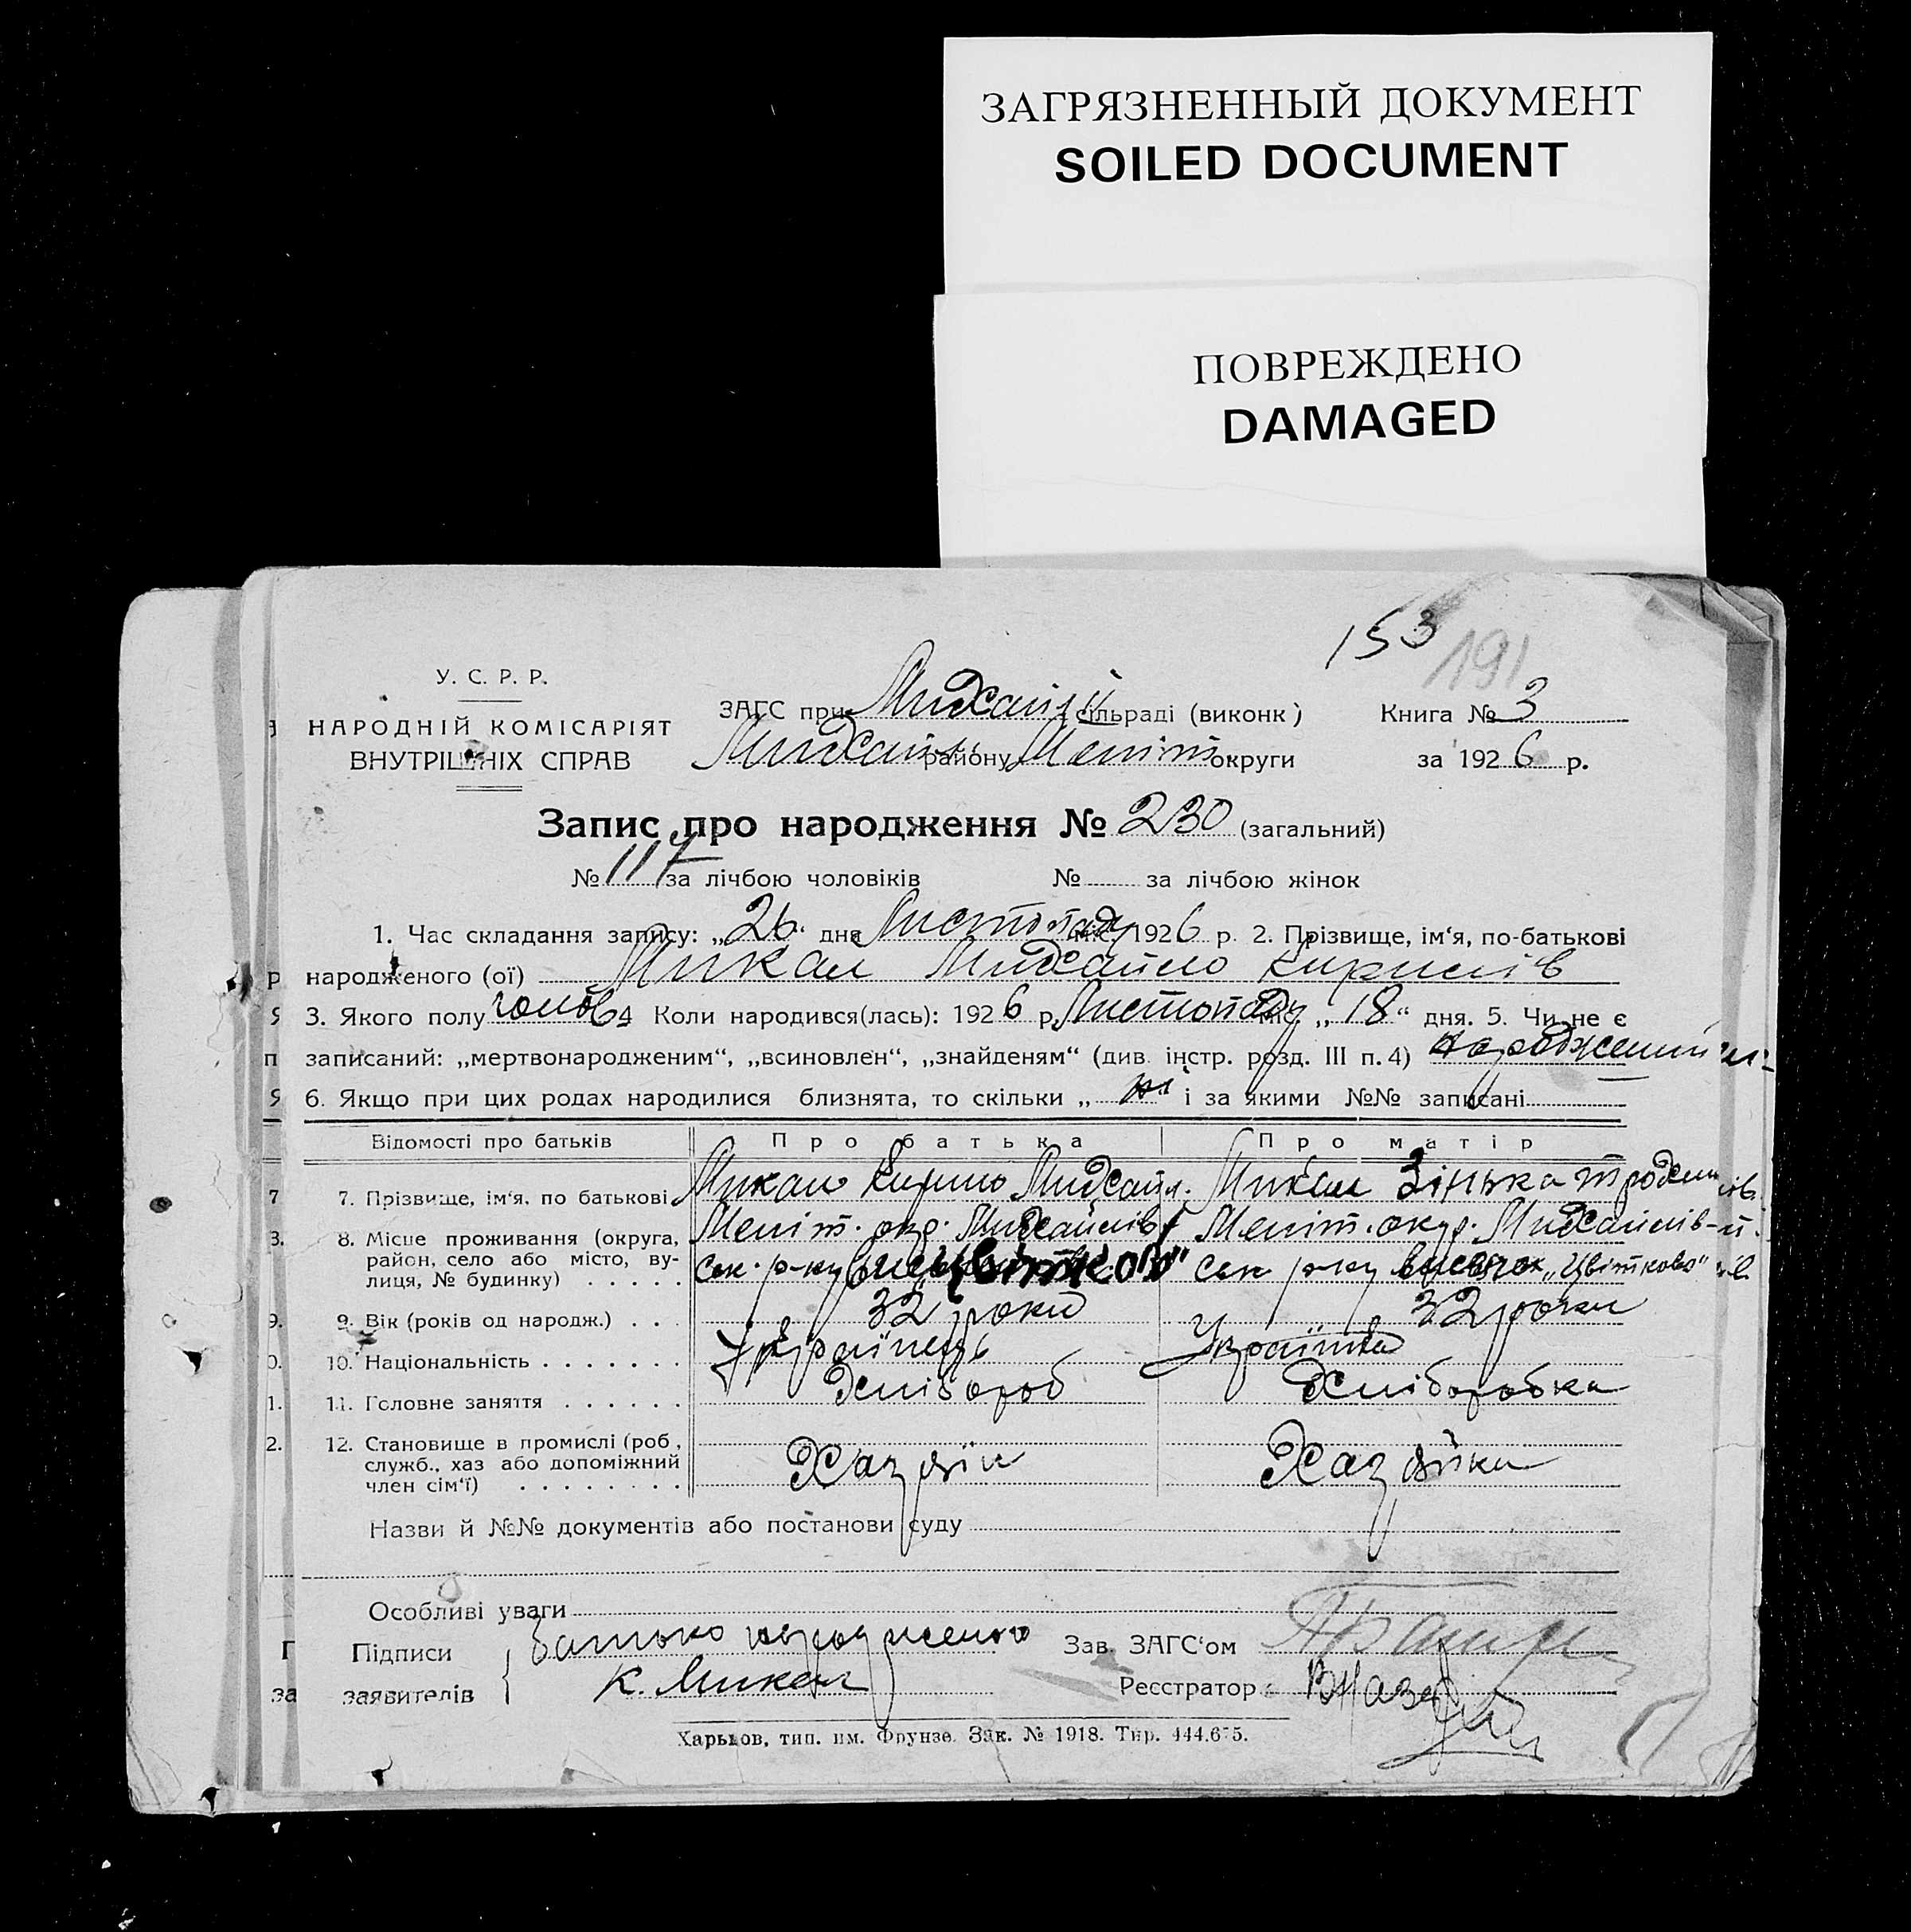 ЗАГРЯЗНЕННЫЙ ДОКУМЕНТ
SOILED DOCUMENT
ПОВРЕЖДЕНО
DAMAGED
153
191
У. С. Р. Р.
НАРОДНІЙ КОМІСАРІЯТ
ВНУТРІШНІХ СПРАВ
ЗАГС при Михайл сільраді (виконк) Книга № 3
Михайл району Меліт округи за 1926 р.
Запис про народження № 230 (загальний)
№ 117 за лічбою чоловіків № за лічбою жінок
1. Час складання запису: „26“ дня Листопаду м-ся 1926 р. 2. Прізвище, ім‘я, по-батькові
народженого (ої) Микал Михайло Кирилів
3. Якого полу чолов 4 Коли народився(лась): 1926 р. Листопаду „18“ дня. 5. Чи не є
записаний: „мертвонародженим“, „всиновлен“, „знайденям“ (див. інстр. розд. III п. 4) народжений
6. Якщо при цих родах народилися близнята, то скільки „ “ і за якими №№ записані
Відомості про батьків Про батька Про матір
7. Прізвище, ім‘я, по батькові Микал Кирило Михайл. Микал Зінька
8. Місце проживання (округа, район, село або місто, вулиця, № будинку) Меліт. окр. Михайлів Меліт. окр. Михайлів-
р-ну Цвітково" р-ну висілок „Цвітково"
9. Вік (років од народж.) 32 роки 32 роки
10. Національність Українець Українка
11. Головне заняття Хлібороб Хліборобка
12. Становище в промислі (роб, служб., хаз або допоміжний член сім‘ї) Хазяїн Хазяйка
Назви й №№ документів або постанови суду
Особливі уваги
Підписи заявителів Батько народженого Зав. ЗАГС‘ом
К. Микал Реєстратор
Харьков, тип. им. Фрунзе. Зак. № 1918. Тир. 444.675.